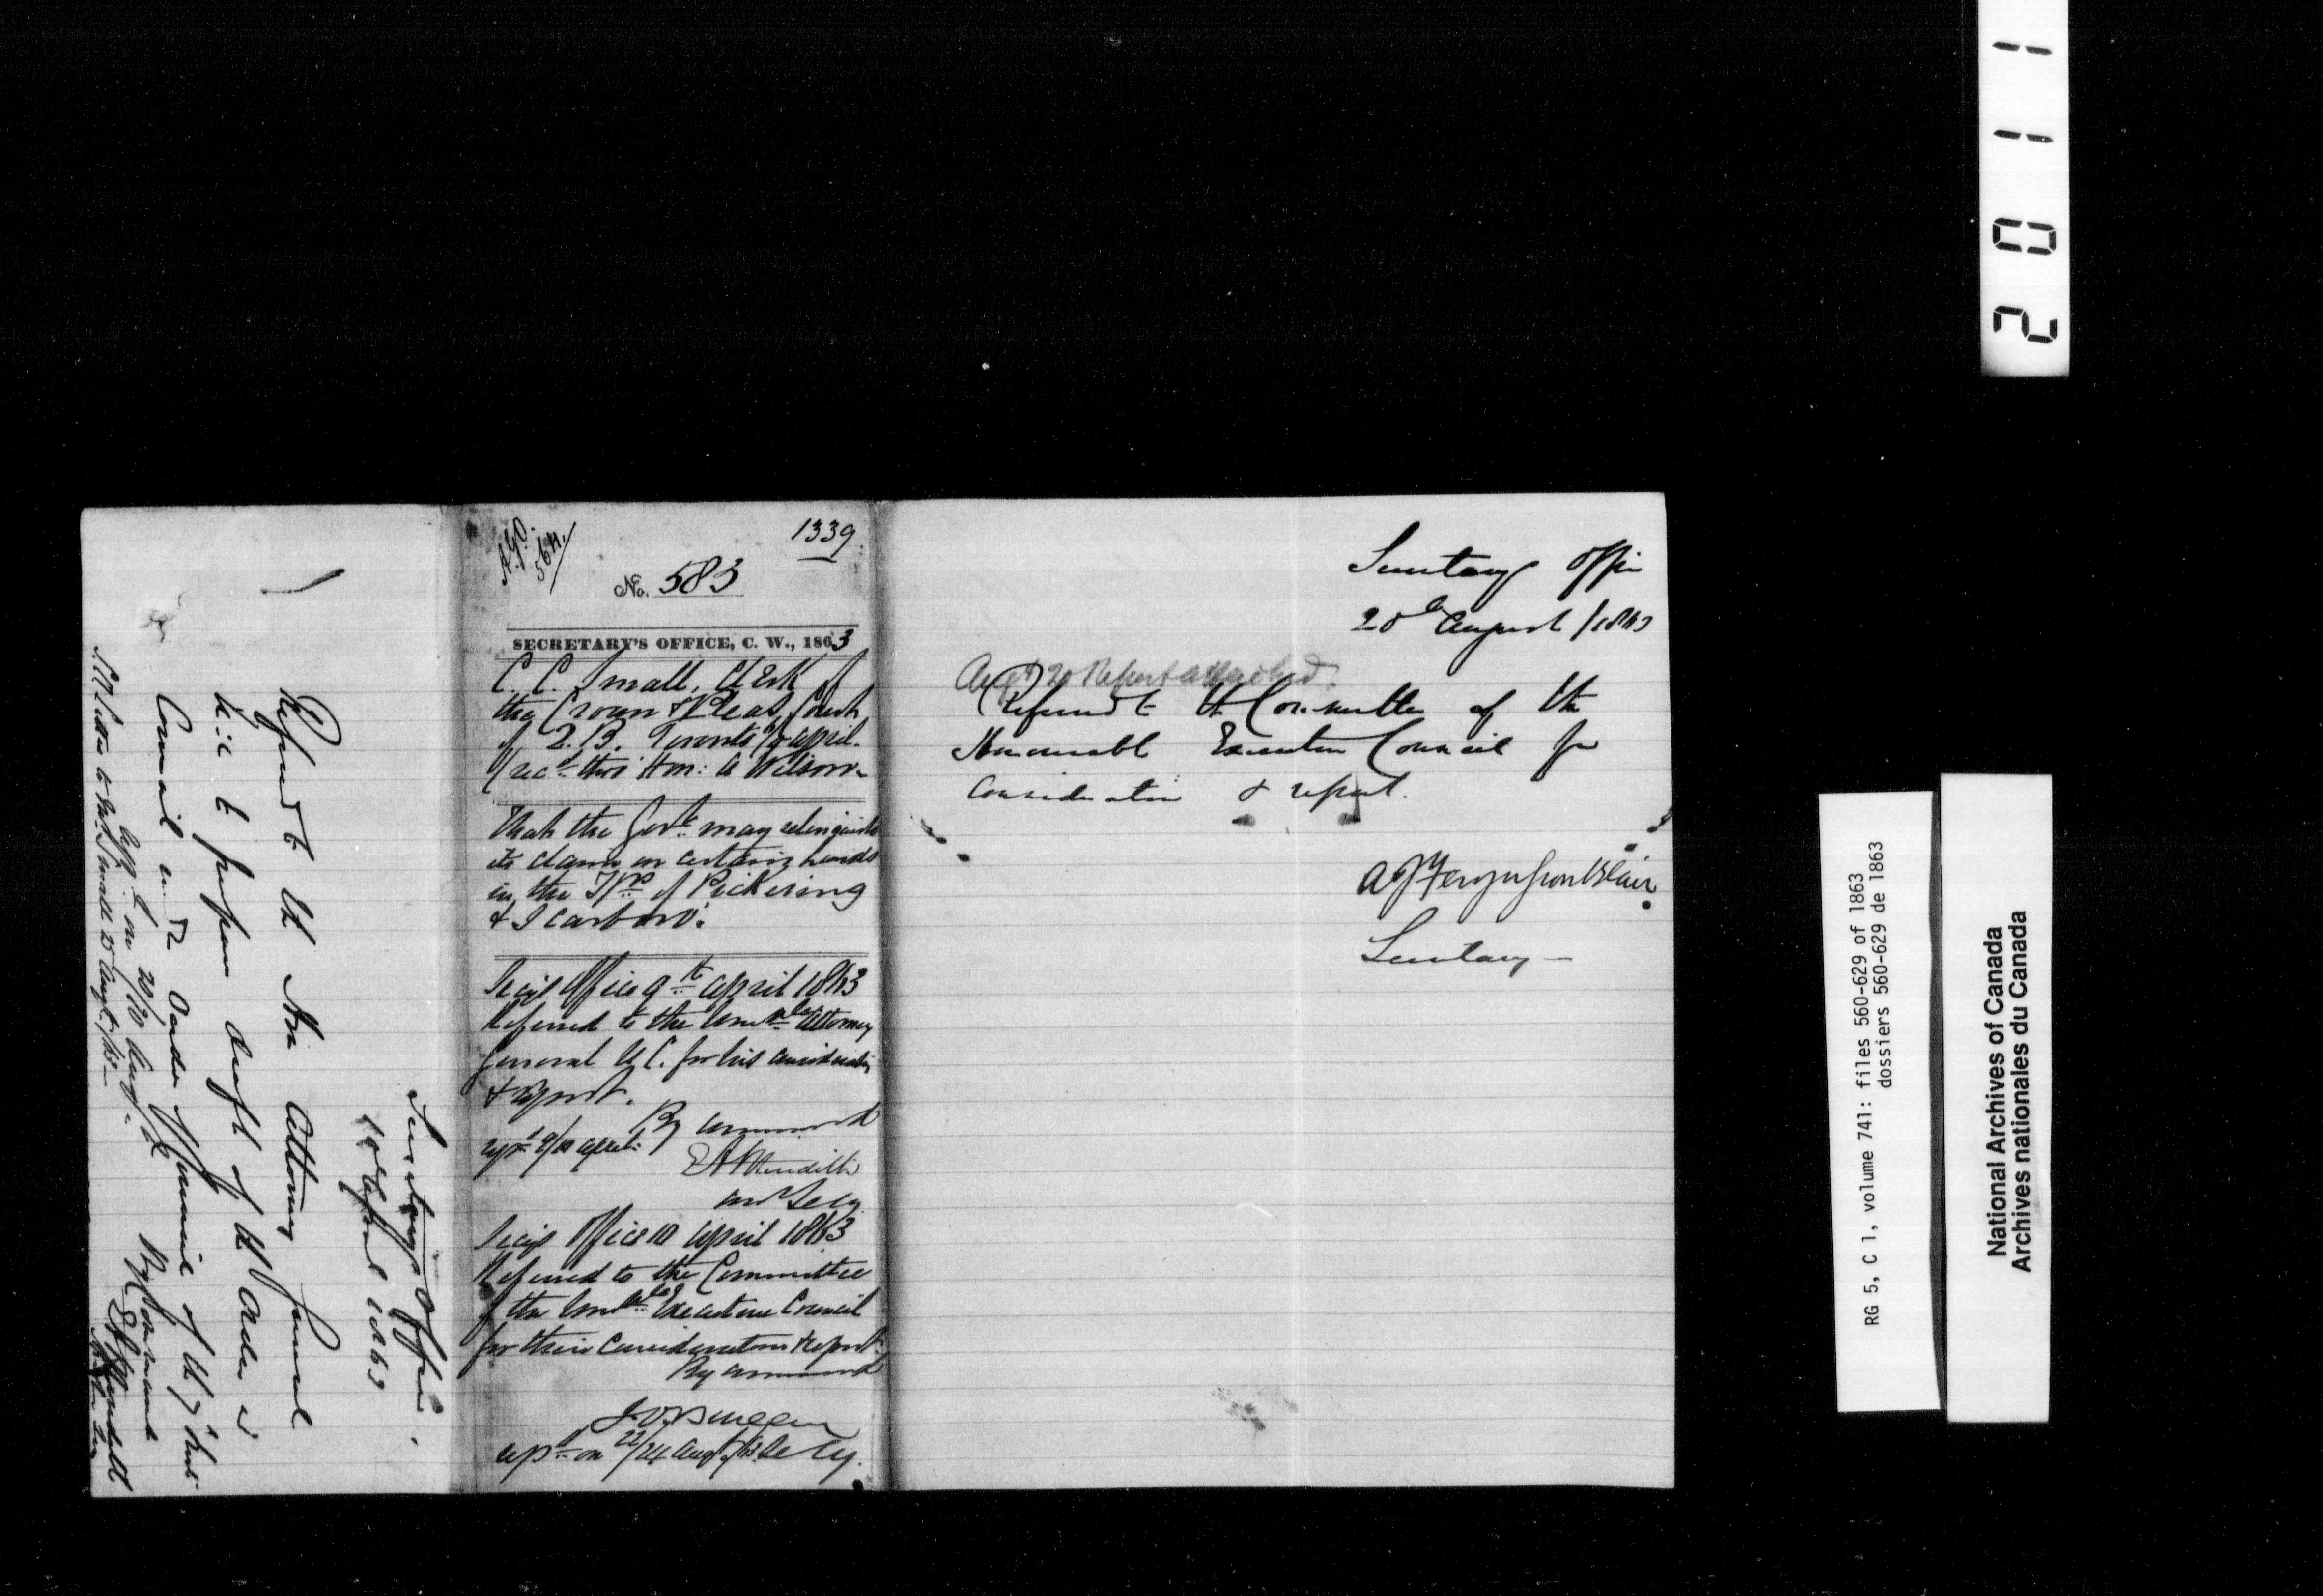 Secretary's Office
10th April 1863
Referred to the Hon Attorney General
U.C. to prepare draft of the Order in
Council under Order of Council of the 7th
By Command
E A Meredith
Asst Secy
Letter to Mr Small 25 Augt /63
A.G.O.
564
1339
No. 583
SECRETARY'S OFFICE, C. W., 1863
C. C. Small, Clerk of
the Crown & Pleas, Court
of Q. B. Toronto April.
(recd thro' Hon: A Wilson.
That the Govt. may relinquish
its claim on certain lands
in the T/p of Pickering
& Scarboro'.
Secy's Office 9th April 1863
Referred to the Honble Attorney
General U C. for his consideration
& report.
By command
E A Meredith
Asst Secy
repd 9/10 April
Secy's Office 10 April 1863
Referred to the Committee
of the Honble Executive Council
for their consideration & report.
By command
Secy.
repd on 22/24 Augt /63
Secretary's Office
20th August /1863
Augt 20 Report attached.
Referred to the Committee of the
Honourable Executive Council for
consideration & report.
A J Fergusson Blair
Secretary
2011
RG 5, C 1, volume 741: files 560-629 of 1863
dossiers 560-629 de 1863
National Archives of Canada
Archives nationales du Canada